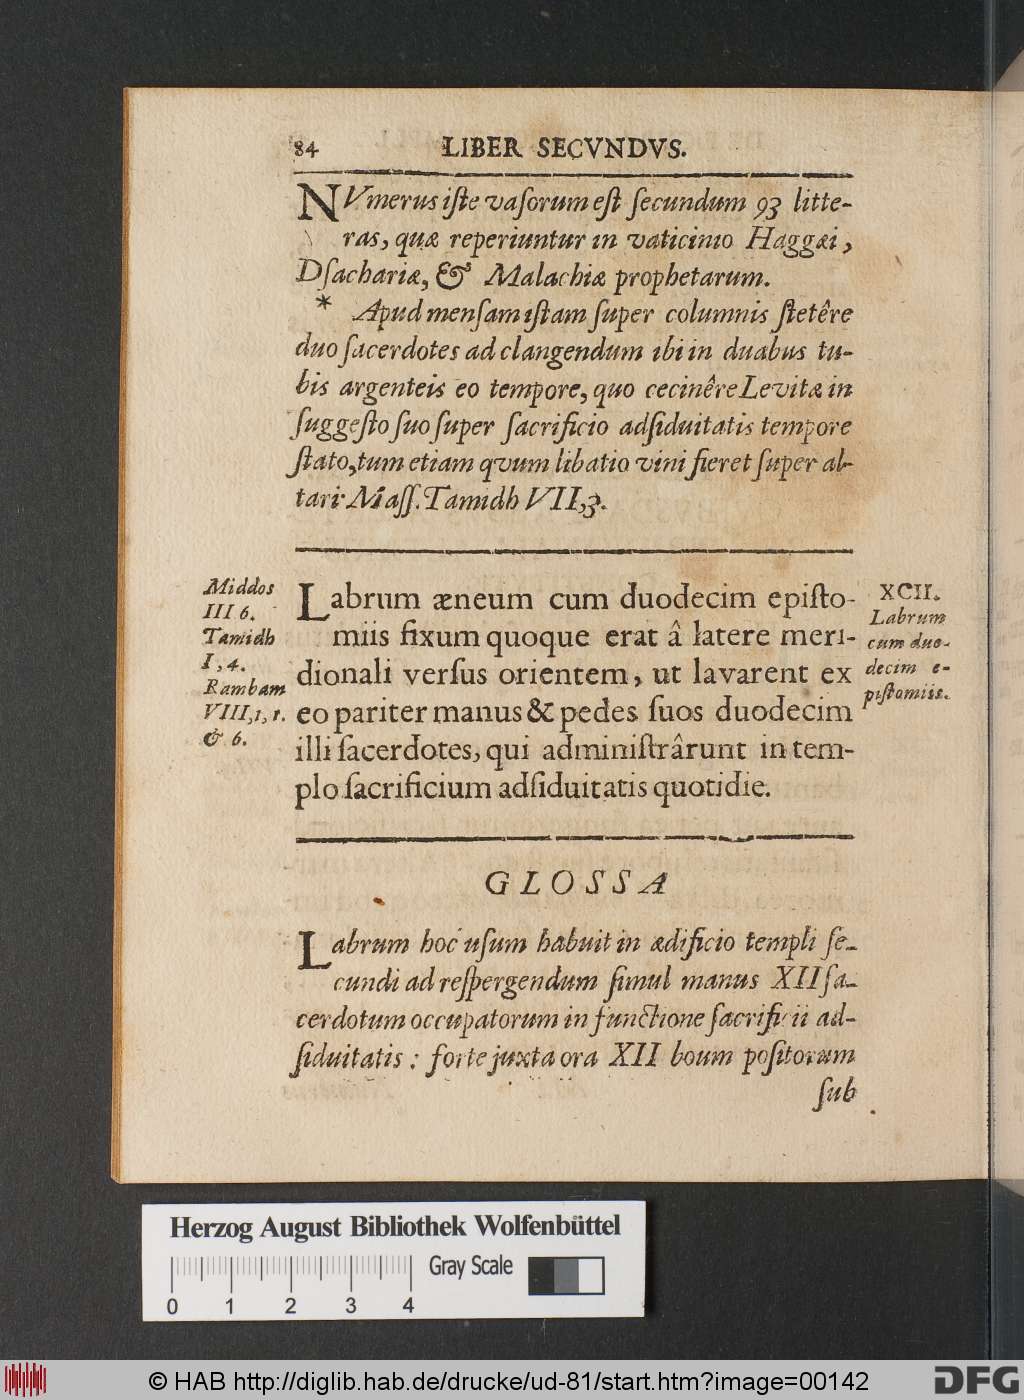 84 LIBER SECVNDVS.
NVmerus iſte vaſorum eſt ſecundum 93 litte-
ras, quæ reperiuntur in vaticinio Haggæi,
Dſachariæ, & Malachiæ prophetarum.
* Apud menſam iſtam ſuper columnis ſtetêre
duo ſacerdotes ad clangendum ibi in duabus tu-
bis argenteis eo tempore, quo cecinêre Levitæ in
ſuggeſto ſuo ſuper ſacrificio adſiduitatis tempore
ſtato, tum etiam qvum libatio vini fieret ſuper al-
tari Maſſ. Tamidh VII,3.
Middos
III 6.
Tamidh
I, 4.
Rambam
VIII,1,1.
& 6.
Labrum æneum cum duodecim epiſto-
miis fixum quoque erat â latere meri-
dionali verſus orientem, ut lavarent ex
eo pariter manus & pedes ſuos duodecim
illi ſacerdotes, qui adminiſtrârunt in tem-
plo ſacrificium adſiduitatis quotidie.
XCII.
Labrum
cum duo-
decim e-
piſtomiis.
GLOSSA
Labrum hoc uſum habuit in ædificio templi ſe-
cundi ad reſpergendum ſimul manus XII ſa-
cerdotum occupatorum in functione ſacrificii ad-
ſiduitatis: forte juxta ora XII boum poſitorum
ſub
Herzog August Bibliothek Wolfenbüttel
Gray Scale
0 1 2 3 4
© HAB http://diglib.hab.de/drucke/ud-81/start.htm?image=00142
DFG